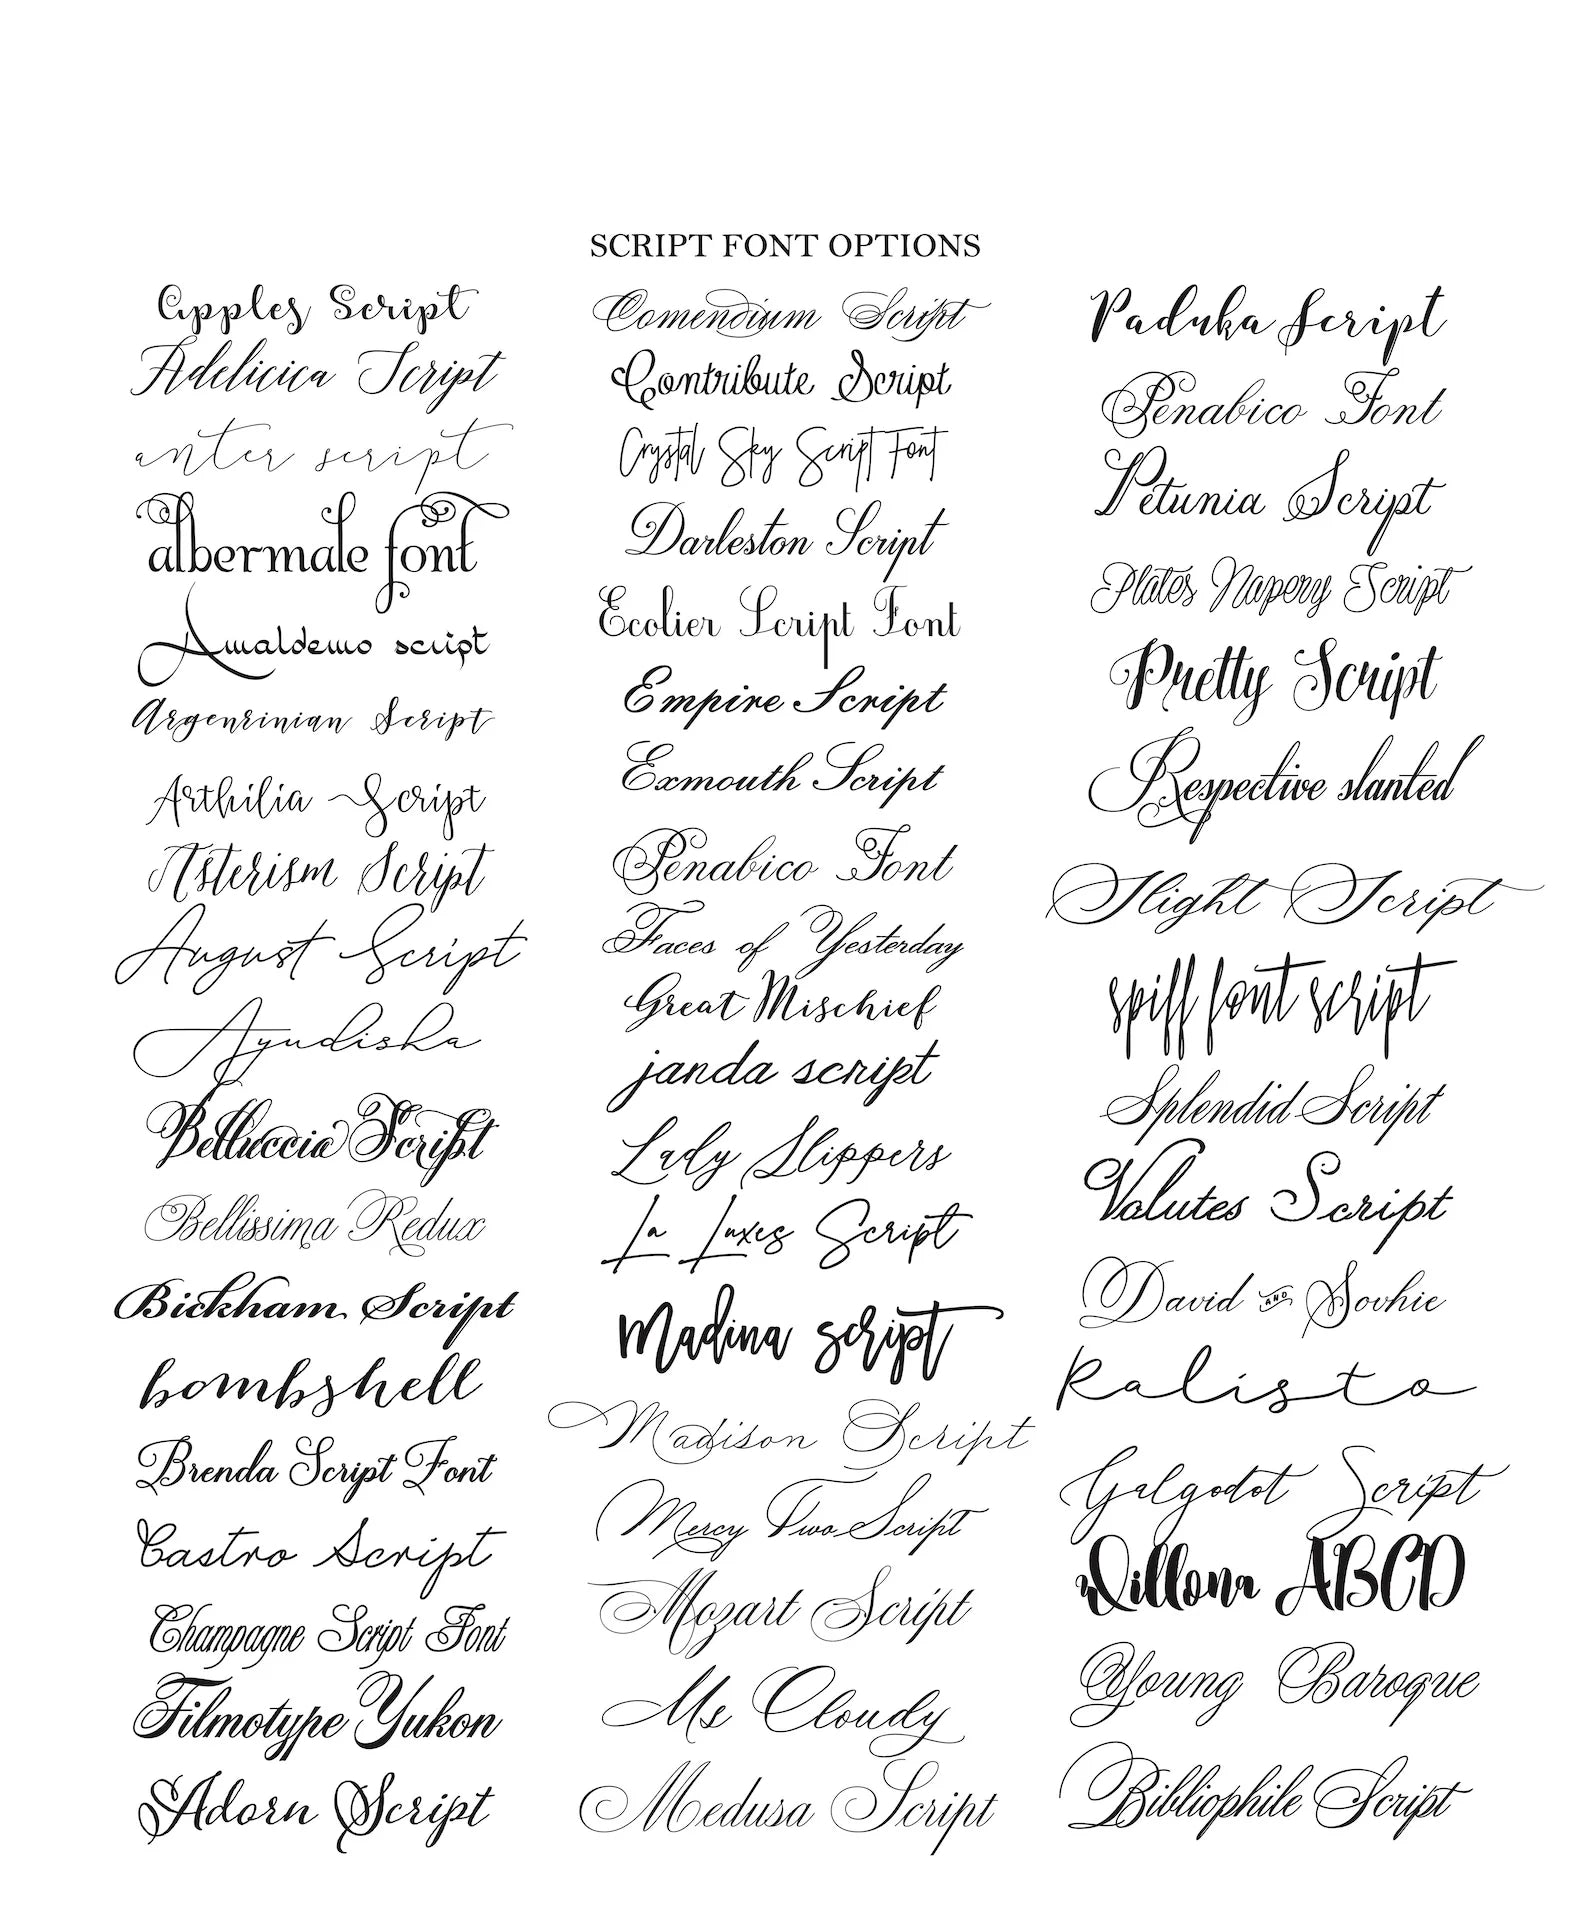 SCRIPT FONT OPTIONS
Apples Script
Adelicica Script
anter script
albermale font
Amaldemo script
Argenrinian Script
Arthilia Script
Asterism Script
August Script
Ayudiska
Belluccia Script
Bellissima Redux
Bickham Script
bombshell
Brenda Script Font
Castro Script
Champagne Script Font
Filmotype Yukon
Adorn Script
Comendium Script
Contribute Script
Crystal Sky Script Font
Darleston Script
Ecolier Script Font
Empire Script
Exmouth Script
Penabico Font
Faces of Yesterday
Great Mischief
janda script
Lady Slippers
La Luxes Script
Madina script
Madison Script
Mercy Two Script
Mozart Script
Ms Cloudy
Medusa Script
Paduka Script
Penabico Font
Petunia Script
Plates Napery Script
Pretty Script
Respective slanted
Slight Script
spiff font script
Splendid Script
Valutes Script
David AND Sovhie
Kalista
Galgodot Script
Dillona ABCD
Young Baroque
Bibliophile Script